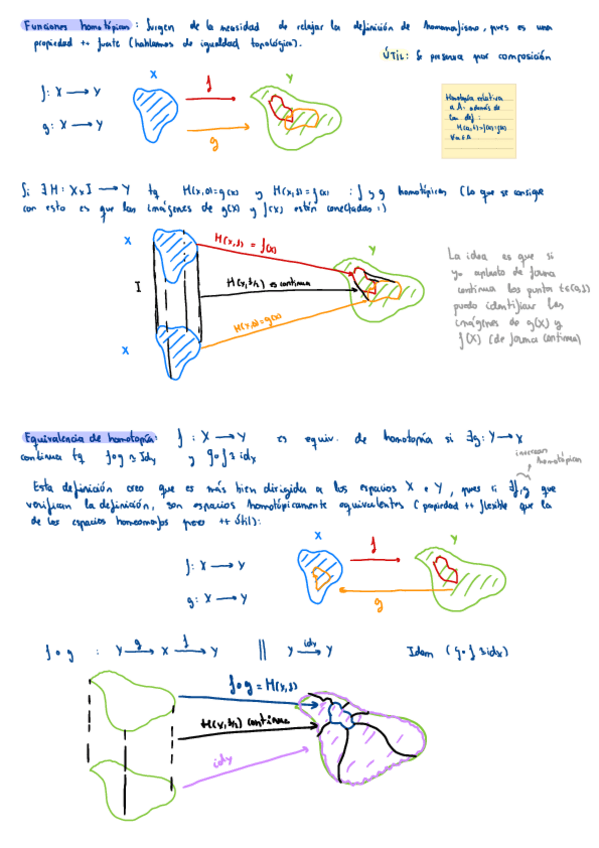 Funciones homotópicas: Surgen de la necesidad de relajar la definición de homeomorfismo, pues es una
propiedad ++ fuerte (hablamos de igualdad topológica).
ÚTIL: Se preserva por composición
f: X → Y
g: X → Y
X
f
g
Y
Homotopía relativa
a A: además de
las def:
H(a,t)=f(a)=g(a)
∀a∈A
Si ∃ H: X×I → Y tq H(x,0)=g(x) y H(x,1)=f(x) : f y g homotópicas (lo que se consigue
con esto es que las imágenes de g(x) y f(x) estén conectadas :)
X
I
X
H(x,1) = f(x)
H(x,1/2) es continua
H(x,0)=g(x)
Y
La idea es que si
yo aplasto de forma
continua los puntos t∈(0,1)
puedo identificar las
imágenes de g(X) y
f(X) (de forma continua)
Equivalencia de homotopía: f : X → Y es equiv. de homotopía si ∃g: Y → X
continua tq f∘g ≃ Idy y g∘f ≃ idx
inversas
homotópicas
Esta definición creo que es más bien dirigida a los espacios X e Y, pues si ∃f,g que
verifican la definición, son espacios homotópicamente equivalentes (propiedad ++ flexible que la
de los espacios homeomorfos pero ++ útil):
f: X → Y
g: X → Y
X
f
g
Y
f∘g : Y →g X →f Y || Y →idy Y Idem (g∘f≃idx)
f∘g = H(y,1)
H(y,1/2) continua
idy